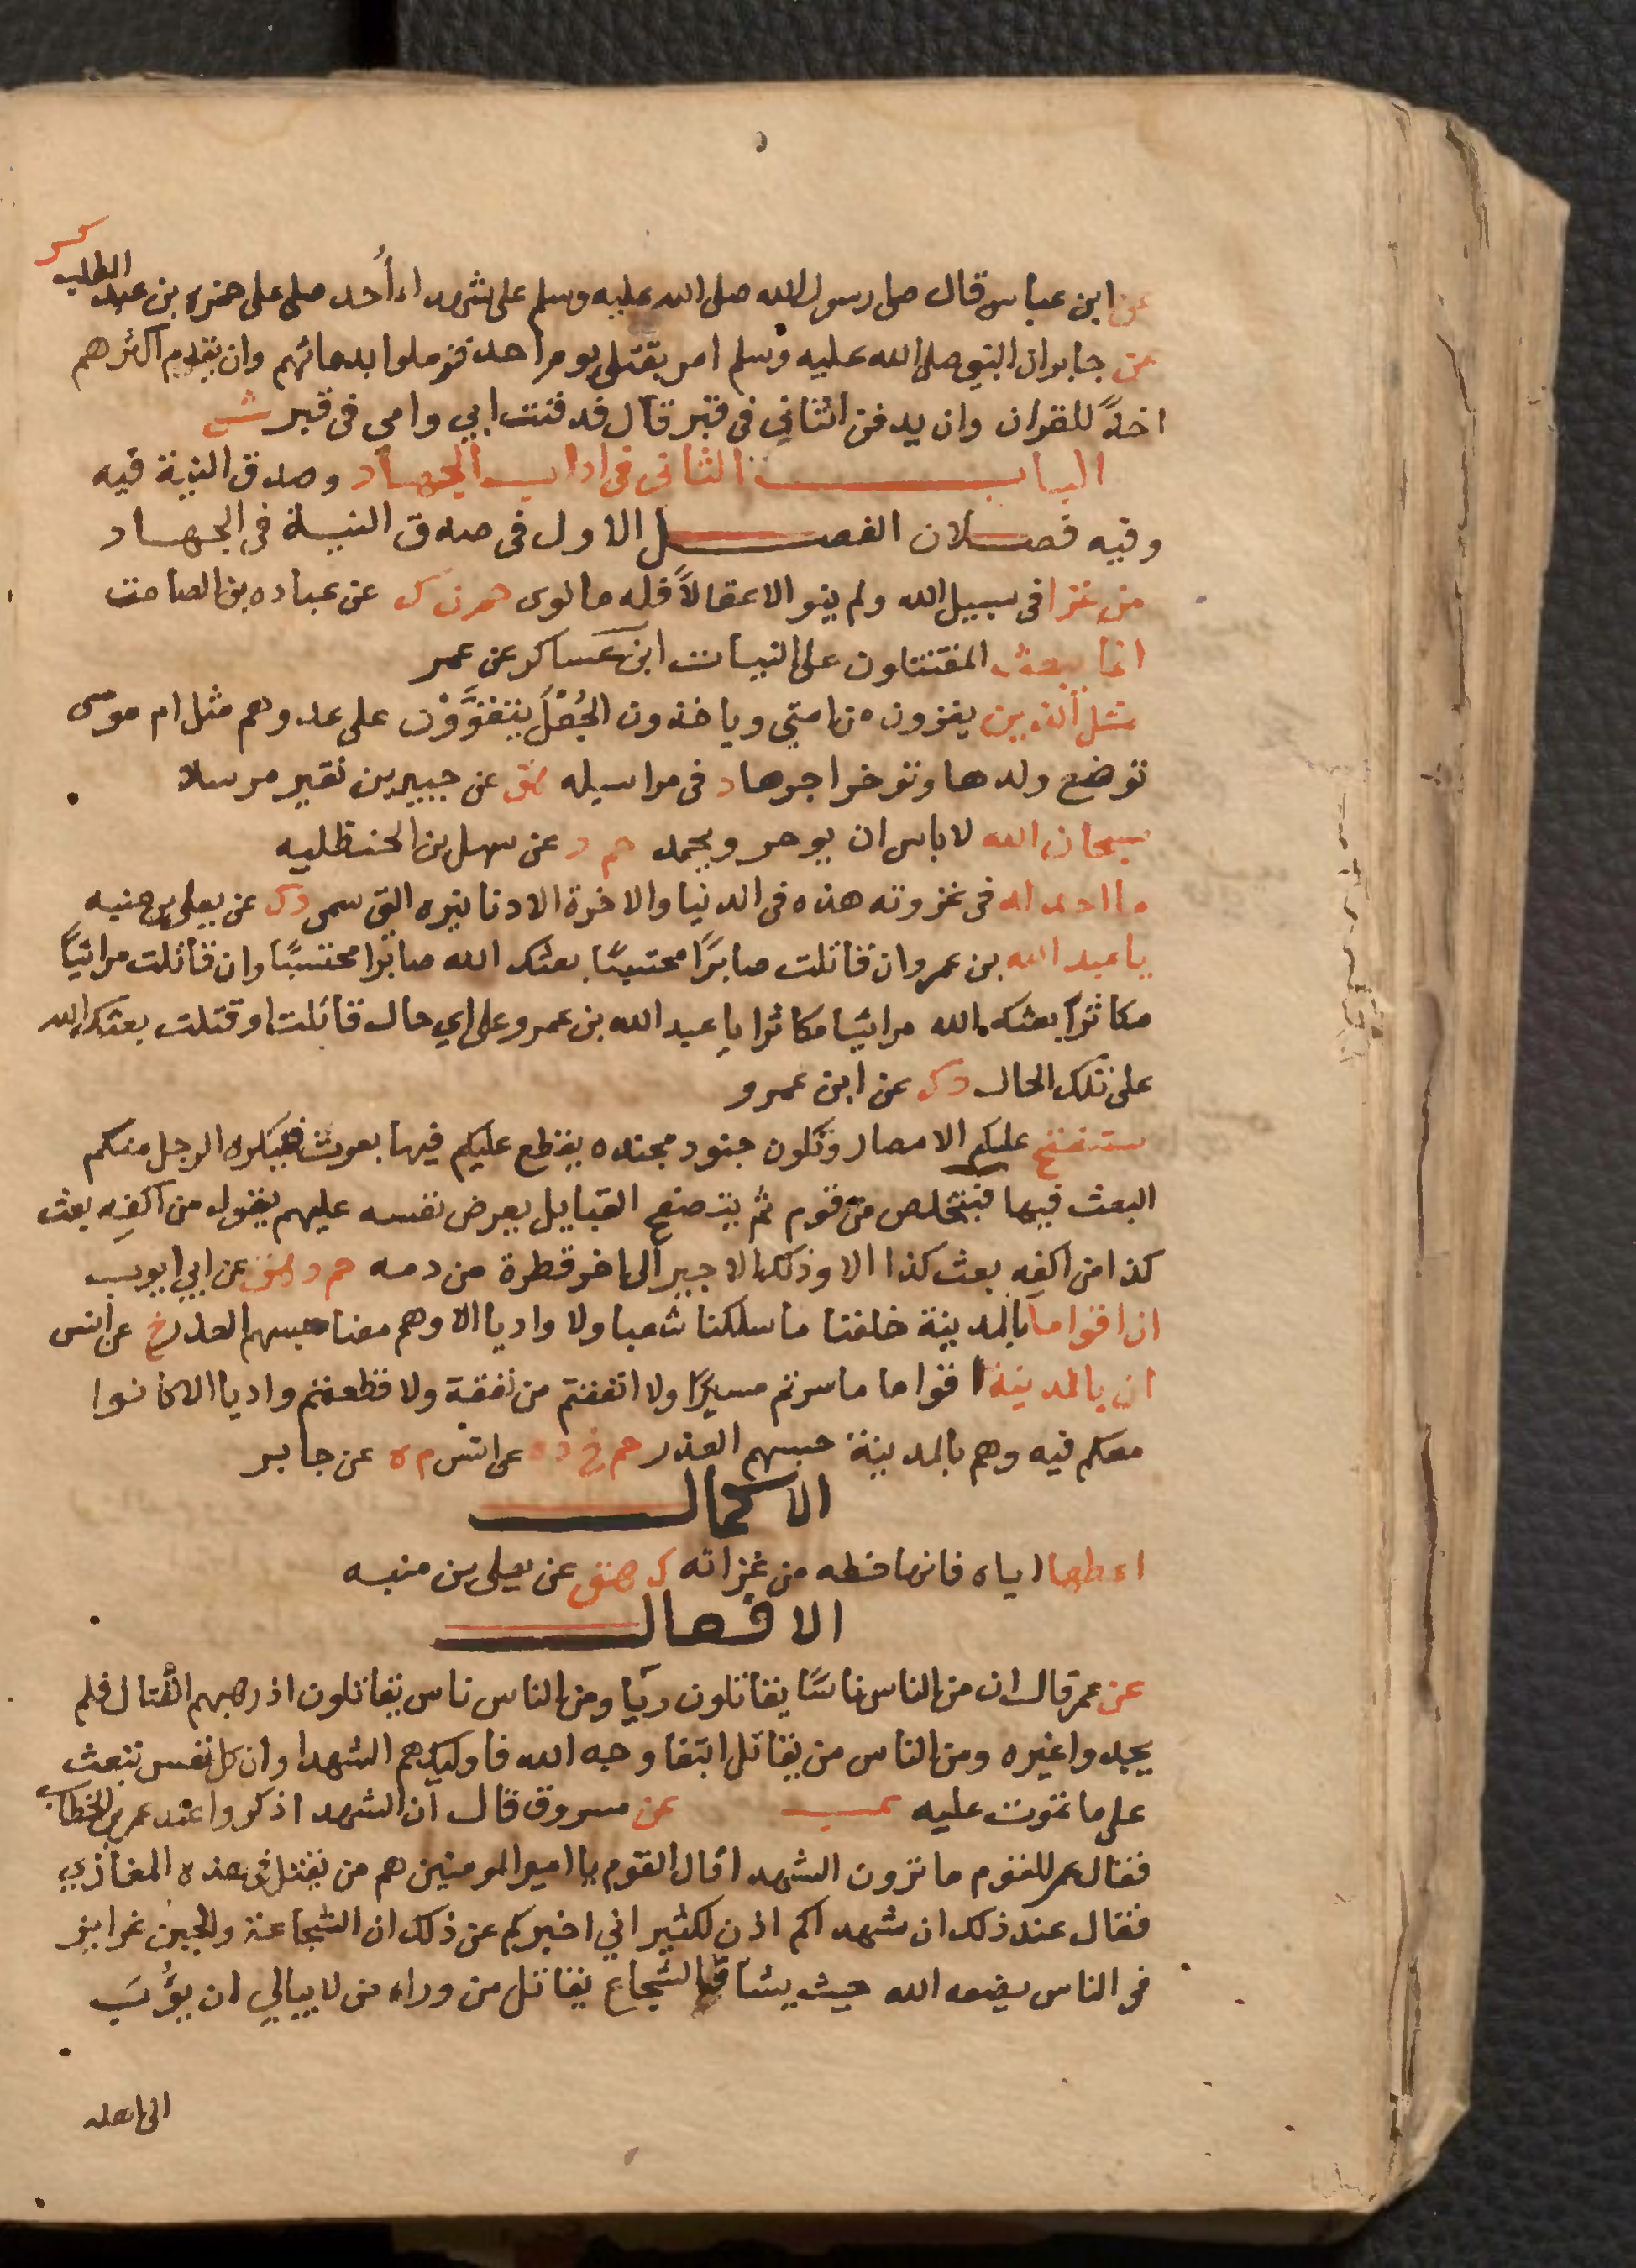 كر
عن ابن عباس قال صلى رسول الله صلى الله عليه وسلم على شهداء أُحد صلى على حمزه بن عبد المطلب
عن جابر ان النبي صلى الله عليه وسلم امر بقتلى يوم احد فزملوا بدمائهم وان يقدم اكثرهم
اخذًا للقران وان يدفن اثنان في قبر قال فدفنت ابي وامي في قبر ش
الباب الثانى فى اداب الجهاد وصدق النية فيه
وفيه فصلان الفصل الاول فى صدق النية فى الجهاد
من غزا فى سبيل الله ولم ينو الا عقالاً فله ما نوى حم ن ك عن عباده بن الصامت
انما يبعث المقتتلون على النيات ابن عساكر عن عمر
مثل الذين يغزون من امتي وياخذون الجُعْلَ يتقوَّوْن على عدوهم مثل ام موسى
ترضع ولدها وتوخر اجرها د فى مراسيله هق عن جبير بن نفير مرسلا
سبحان الله لا باس ان يوجر ويحمد حم د عن سهل بن الحنظليه
ما اجد له فى غزوته هذه فى الدنيا والاخرة الا دنانيره التي سمى د ك عن يعلى بن منيه
يا عبد الله بن عمرو ان قاتلت صابرًا محتسبًا بعثك الله صابرا محتسبًا وان قاتلت مرائيًا
مكاثرًا بعثك الله مرائيًا مكاثرا يا عبد الله بن عمرو على اي حال قاتلت او قتلت بعثك الله
على تلك الحال د ك عن ابن عمرو
ستفتح عليكم الامصار وتكون جنود مجنده يقطع عليكم فيها بعوث فيكره الرجل منكم
البعث فيها فيتخلص من قومه ثم يتصفح القبايل يعرض نفسه عليهم يقول من اكفِه بعث
كذا من اكفِه بعث كذا الا وذلك الاجير الى اخر قطرة من دمه حم د هق عن ابي ايوب
ان اقواما بالمدينة خلفنا ما سلكنا شعبا ولا واديا الا وهم معنا حبسهم العذر خ عن انس
ان بالمدينة اقواما ما سرتم مسيرًا ولا انفقتم من نفقة ولا قطعتم واديا الا كانوا
معكم فيه وهم بالمدينة حبسهم العذر حم خ د ه عن انس م ه عن جابر
الاكمال
اعطها اياه فانها حظه من غزاته ك هق عن يعلى بن منيه
الافعال
عن عمر قال ان من الناس ناسًا يقاتلون ريآ ومن الناس ناس يقاتلون اذ رهبهم القتال فلم
يجدوا غيره ومن الناس من يقاتل ابتغا وجه الله فاوليك هم الشهدا وان كل نفس تبعث
على ما تموت عليه عب عن مسروق قال ان الشهدا ذكروا عند عمر بن الخطاب
فقال عمر للقوم ما ترون الشهدا قال القوم يا امير المومنين هم من يقتل فى هذه المغازي
فقال عند ذلك ان شهداكم اذن لكثير اني اخبركم عن ذلك ان الشجاعة والجبن غرايز
فى الناس يضعه الله حيث يشا فالشجاع يقاتل من وراء من لا يبالي ان يؤب
الى اهله